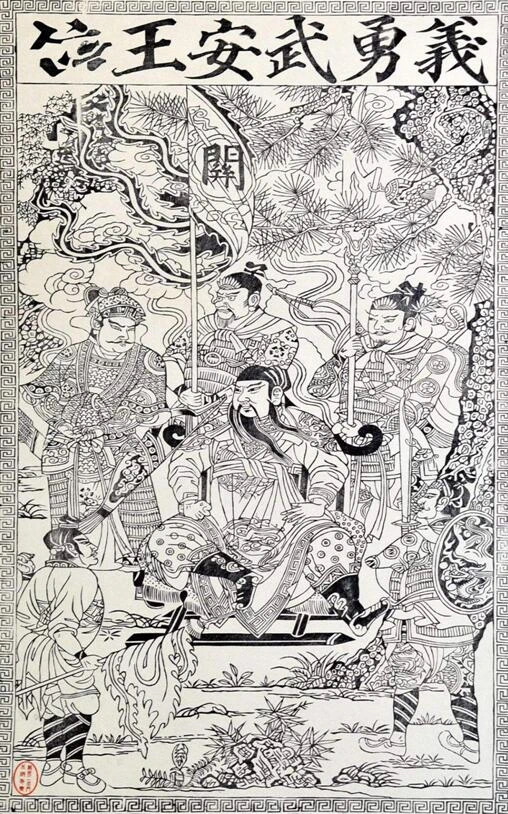 義勇武安王位
關